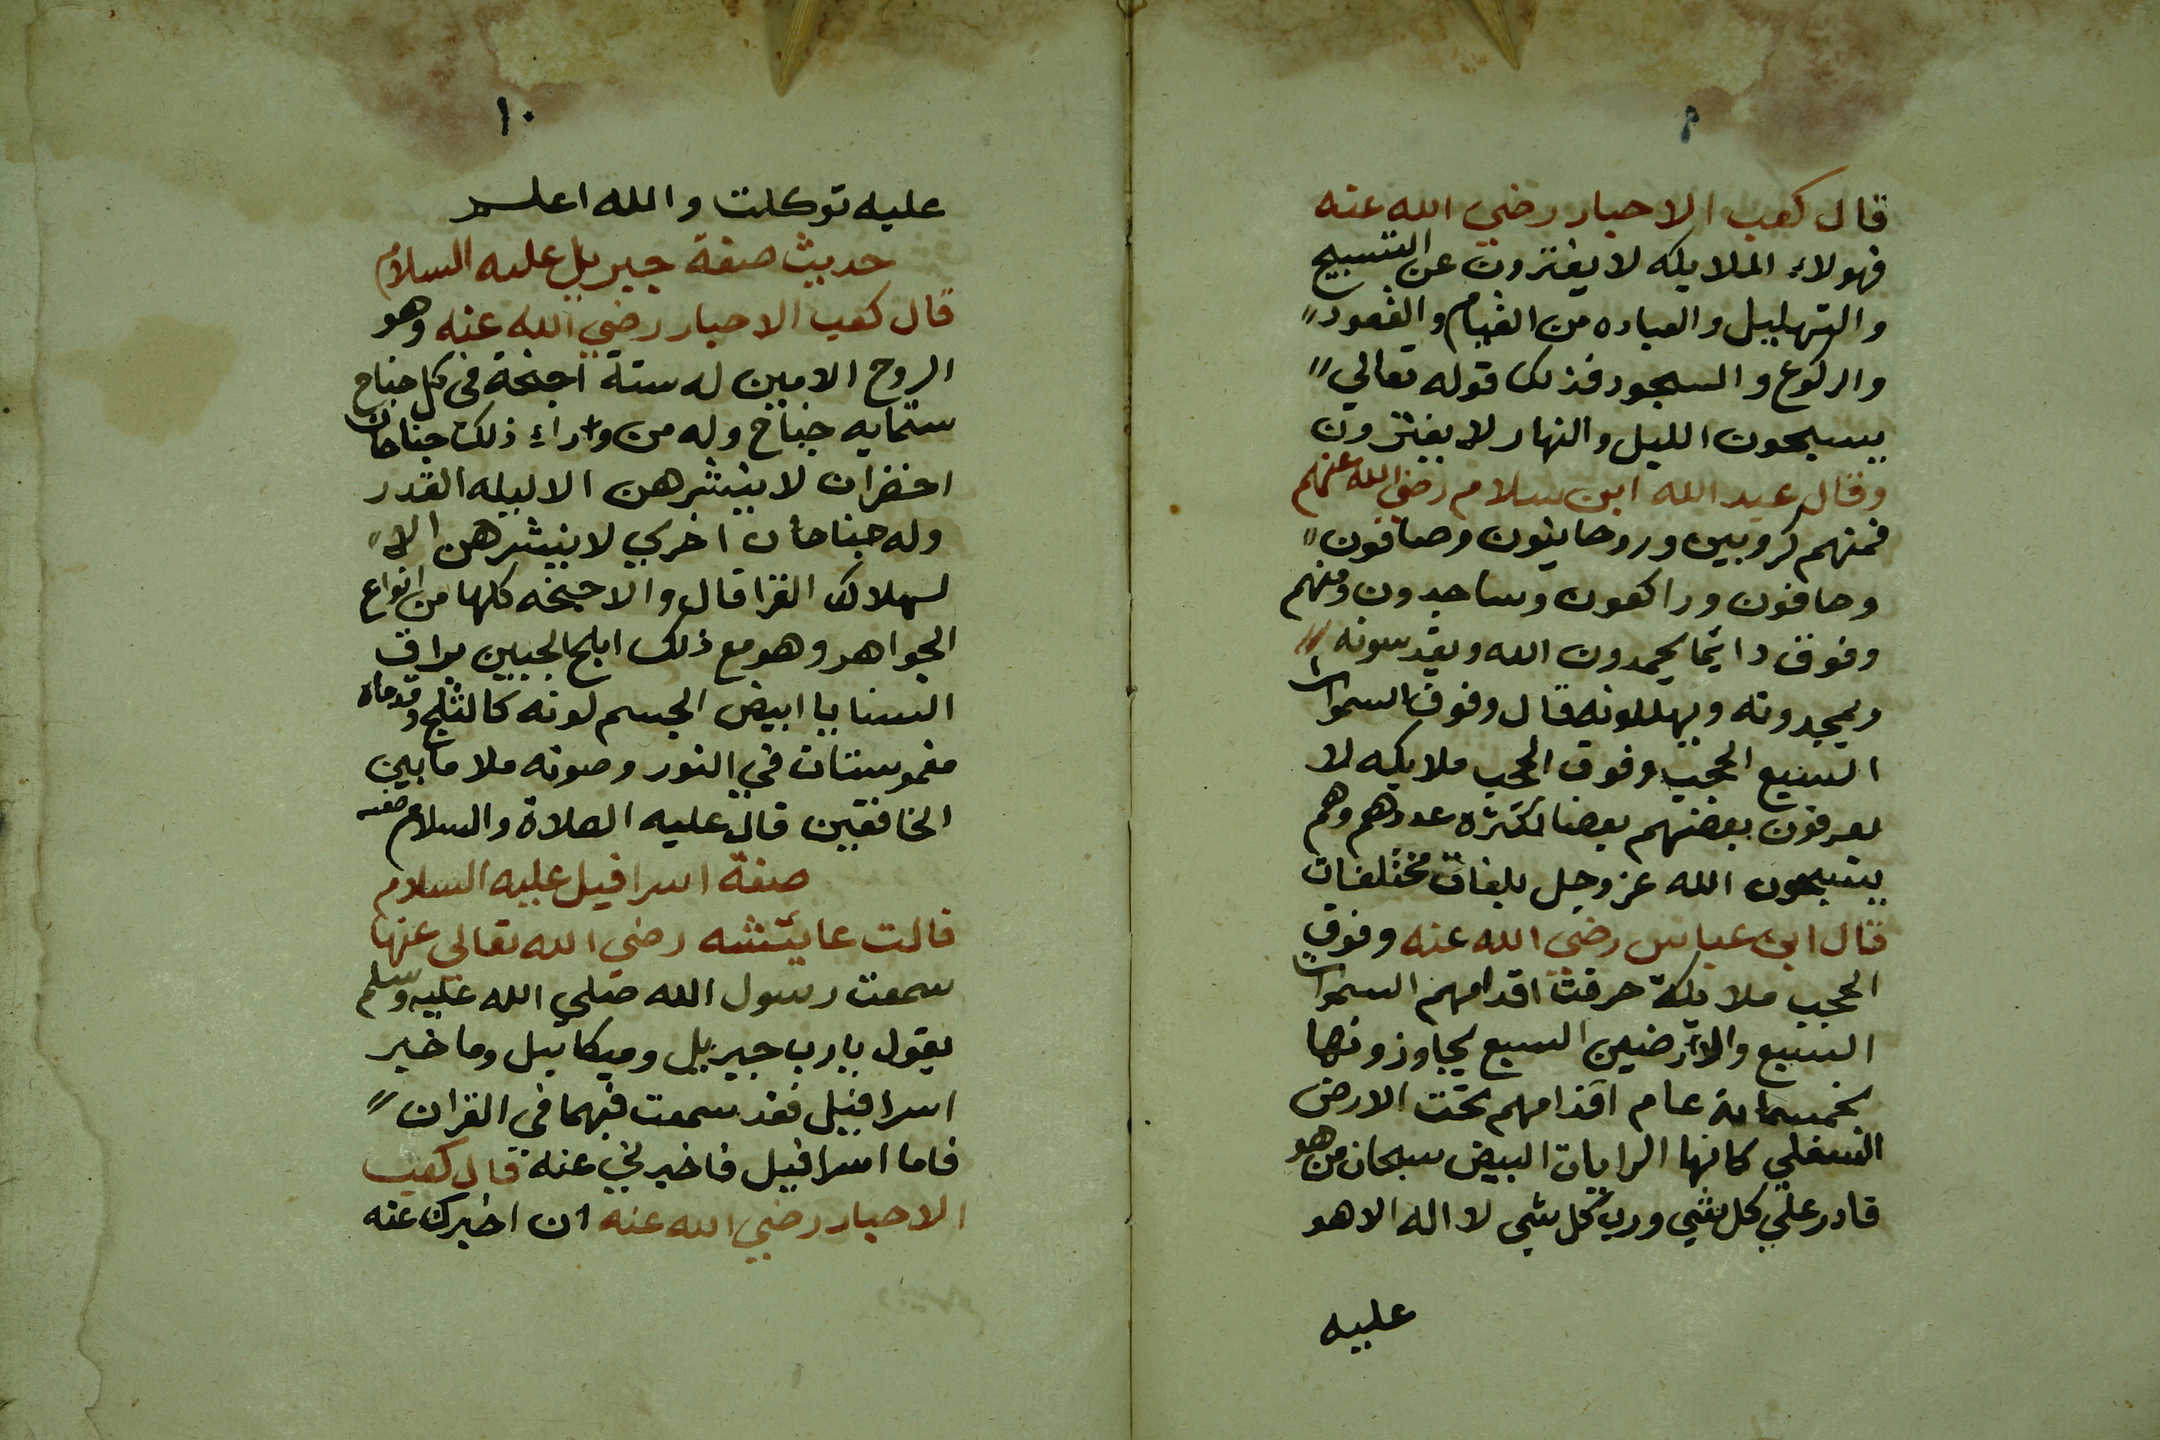 ٩
قال كعب الاحبار رضي الله عنه
فهولاء الملايكه لا يفترون عن التسبيح
والتهليل والعباده من القيام والقعود
والركوع والسجود فذلك قوله تعالي
يسبحون الليل والنهار لا يفترون
وقال عبد الله ابن سلام رضي الله عنهم
فمنهم كروبين وروحانيون وصافون
وحافون وراكعون وساجدون ومنهم
وفوق دايما يحمدون الله ويقدسونه
ويمجدونه ويهللونه قال وفوق السموات
السبع الحجب وفوق الحجب ملايكه لا
يعرفون بعضهم بعضا لكثرة عددهم وهم
يسبحون الله عز وجل بلغات مختلفات
قال ابن عباس رضي الله عنه وفوق
الحجب ملايكة حرقت اقدامهم السموات
السبع والارضين السبع يجاوزونها
بخمسماية عام اقدامهم تحت الارض
السفلي كانها الرايات البيض سبحان من هو
قادر علي كل شي ورب كل شي لا اله الا هو
عليه
١٠
عليه توكلت والله اعلم
حديث صفة جبريل عليه السلام
قال كعب الاحبار رضي الله عنه وهو
الروح الامين له ستة اجنحة في كل جناح
ستمايه جناح وله من وراء ذلك جناحان
اخضران لا ينشرهن الا ليله القدر
وله جناحان اخري لا ينشرهن الا
لهلاك القرا قال والاجنحه كلها من انواع
الجواهر وهو مع ذلك ابلج الجبين براق
السنايا ابيض الجسم لونه كالثلج وقدماه
مغموستان في النور وصوته ملا ما بين
الخافقين قال عليه الصلاة والسلام صفه
صفة اسرافيل عليه السلام
قالت عايشه رضي الله تعالي عنها
سمعت رسول الله صلي الله عليه وسلم
يقول يا رب جبريل وميكاييل وما خبر
اسرافيل فقد سمعت فيهما في القران
فاما اسرافيل فاخبرني عنه قال كعب
الاحبار رضي الله عنه ان اخبرك عنه